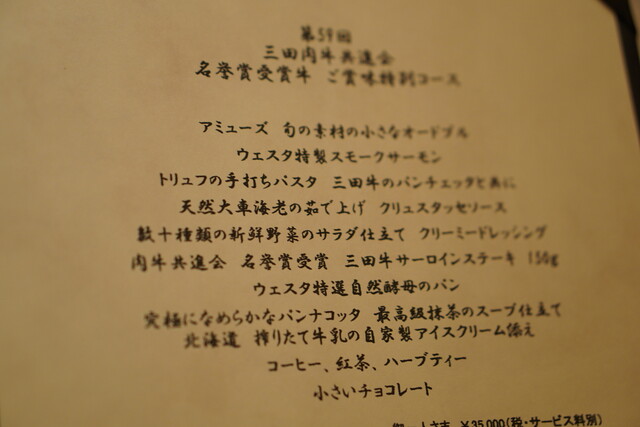 第59回
三田肉牛共進会
名誉賞受賞牛 ご賞味特別コース
アミューズ 旬の素材の小さなオードブル
ウェスタ特製スモークサーモン
トリュフの手打ちパスタ 三田牛のパンチェッタと共に
天然大車海老の茹で上げ クリュスタッセソース
数十種類の新鮮野菜のサラダ仕立て クリーミードレッシング
肉牛共進会 名誉賞受賞 三田牛サーロインステーキ 150g
ウェスタ特選自然酵母のパン
究極になめらかなパンナコッタ 最高級抹茶のスープ仕立て
北海道 搾りたて牛乳の自家製アイスクリーム添え
コーヒー、紅茶、ハーブティー
小さいチョコレート
¥35,000(税・サービス料別)